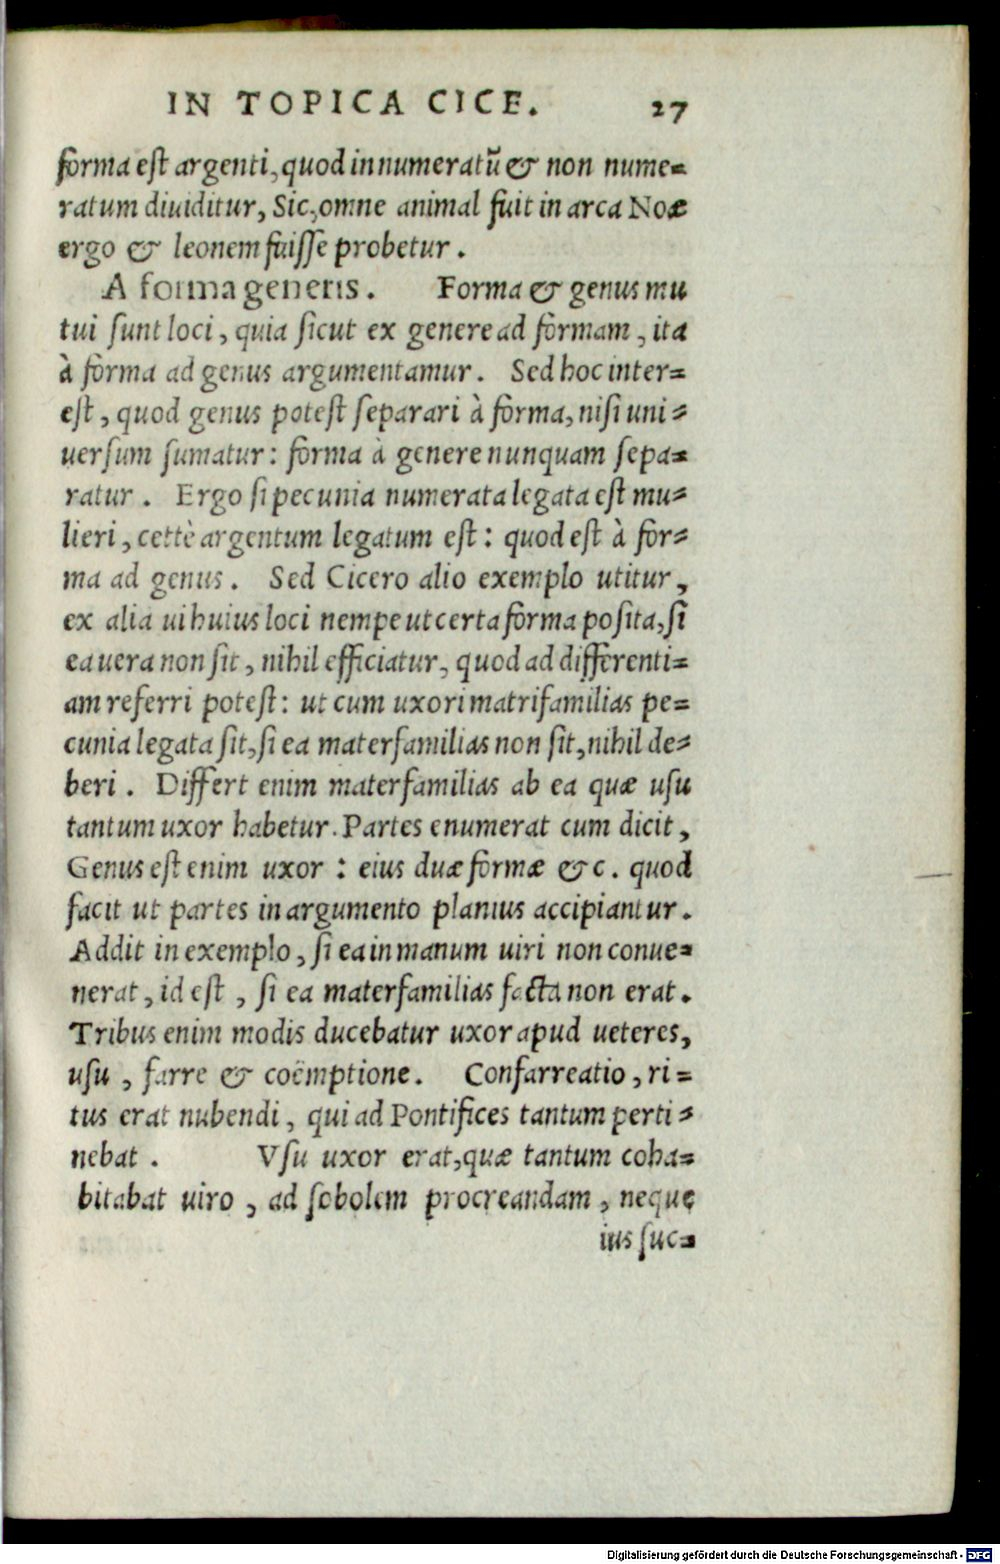 IN TOPICA CICE. 27
forma est argenti, quod in numeratũ & non nume-
ratum diuiditur, Sic, omne animal fuit in arca Noæ
ergo & leonem fuisse probetur.
A forma generis. Forma & genus mu
tui sunt loci, quia sicut ex genere ad formam, ita
à forma ad genus argumentamur. Sed hoc inter-
est, quod genus potest separari à forma, nisi uni-
uersum sumatur: forma à genere nunquam sepa-
ratur. Ergo si pecunia numerata legata est mu-
lieri, cettè argentum legatum est: quod est à for-
ma ad genus. Sed Cicero alio exemplo utitur,
ex alia ui huius loci nempe ut certa forma posita, si
ea uera non sit, nihil efficiatur, quod ad differenti-
am referri potest: ut cum uxori matrifamilias pe-
cunia legata sit, si ea materfamilias non sit, nihil de-
beri. Differt enim materfamilias ab ea quæ usu
tantum uxor habetur. Partes enumerat cum dicit,
Genus est enim uxor: eius duæ formæ &c. quod
facit ut partes in argumento planius accipiantur.
Addit in exemplo, si ea in manum uiri non conue-
nerat, id est, si ea materfamilias facta non erat.
Tribus enim modis ducebatur uxor apud ueteres,
usu, farre & coëmptione. Confarreatio, ri-
tus erat nubendi, qui ad Pontifices tantum perti-
nebat. Vsu uxor erat, quæ tantum coha-
bitabat uiro, ad sobolem procreandam, neque
ius suc-
Digitalisierung gefördert durch die Deutsche Forschungsgemeinschaft - DFG